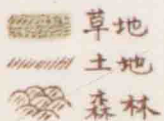 草地
土地
森林